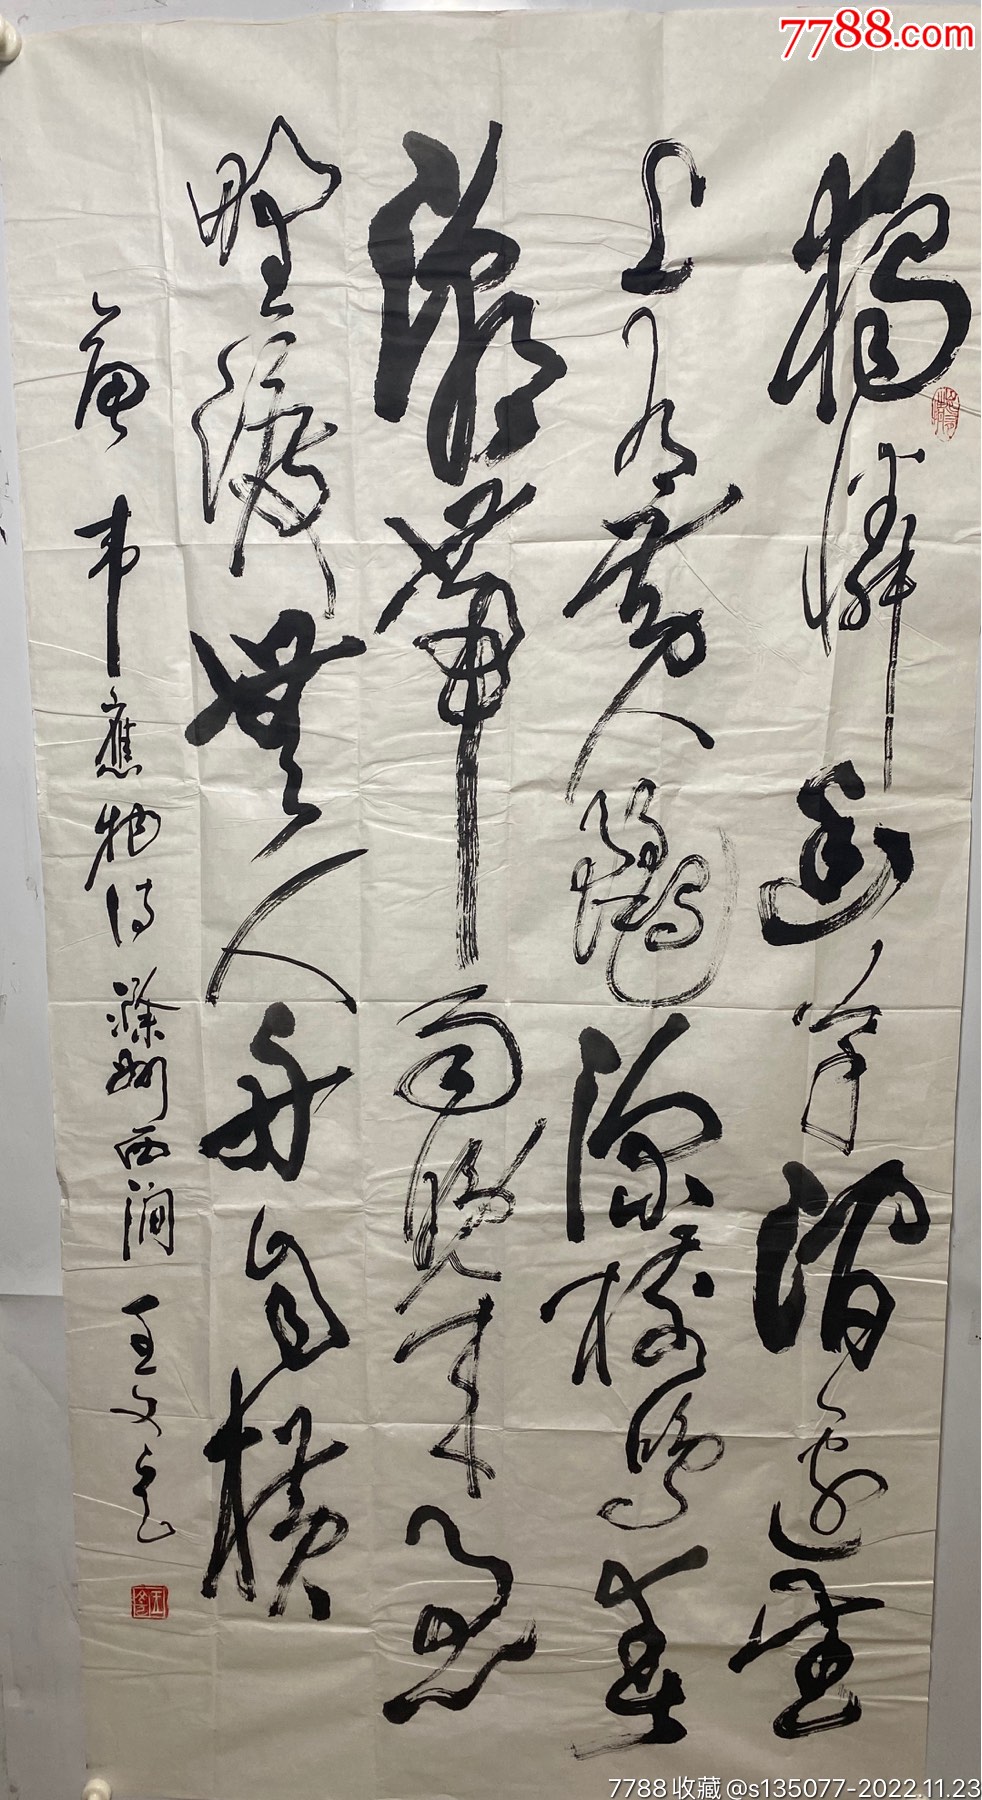 7788.com
獨憐幽草澗邊生
上有黃鸝深樹鳴春
潮帶雨晚來急
野渡無人舟自橫
唐韋應物詩滁州西澗 王文
7788收藏@s135077-2022.11.23